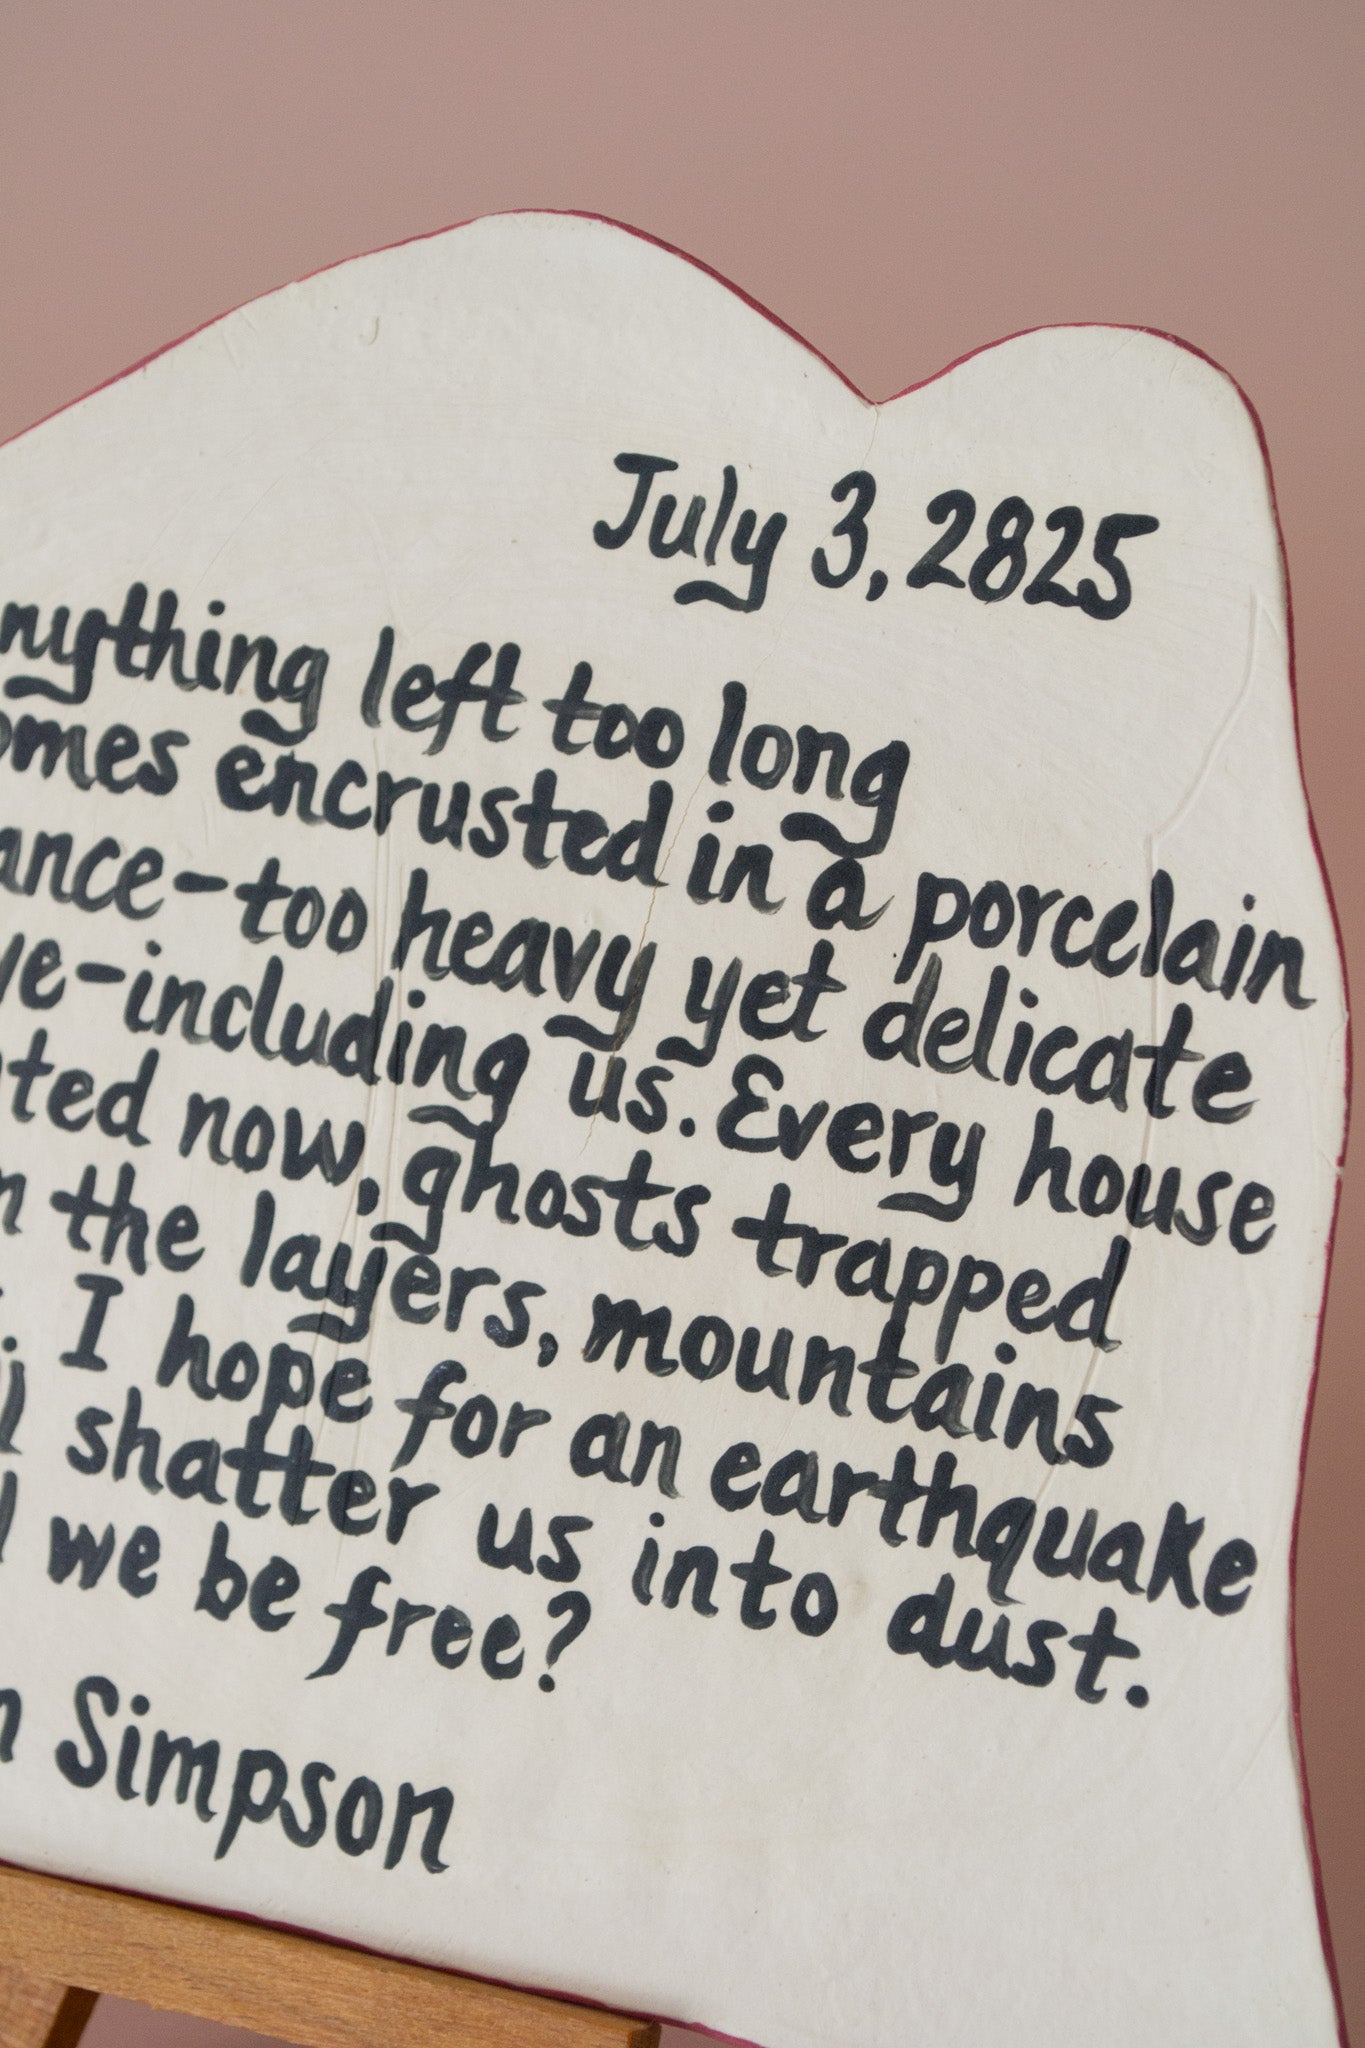 July 3, 2825
left too long
encrusted in a porcelain
too heavy yet delicate
including us. Every house
now, ghosts trapped
the layers, mountains
I hope for an earthquake
shatter us into dust.
we be free?
Simpson